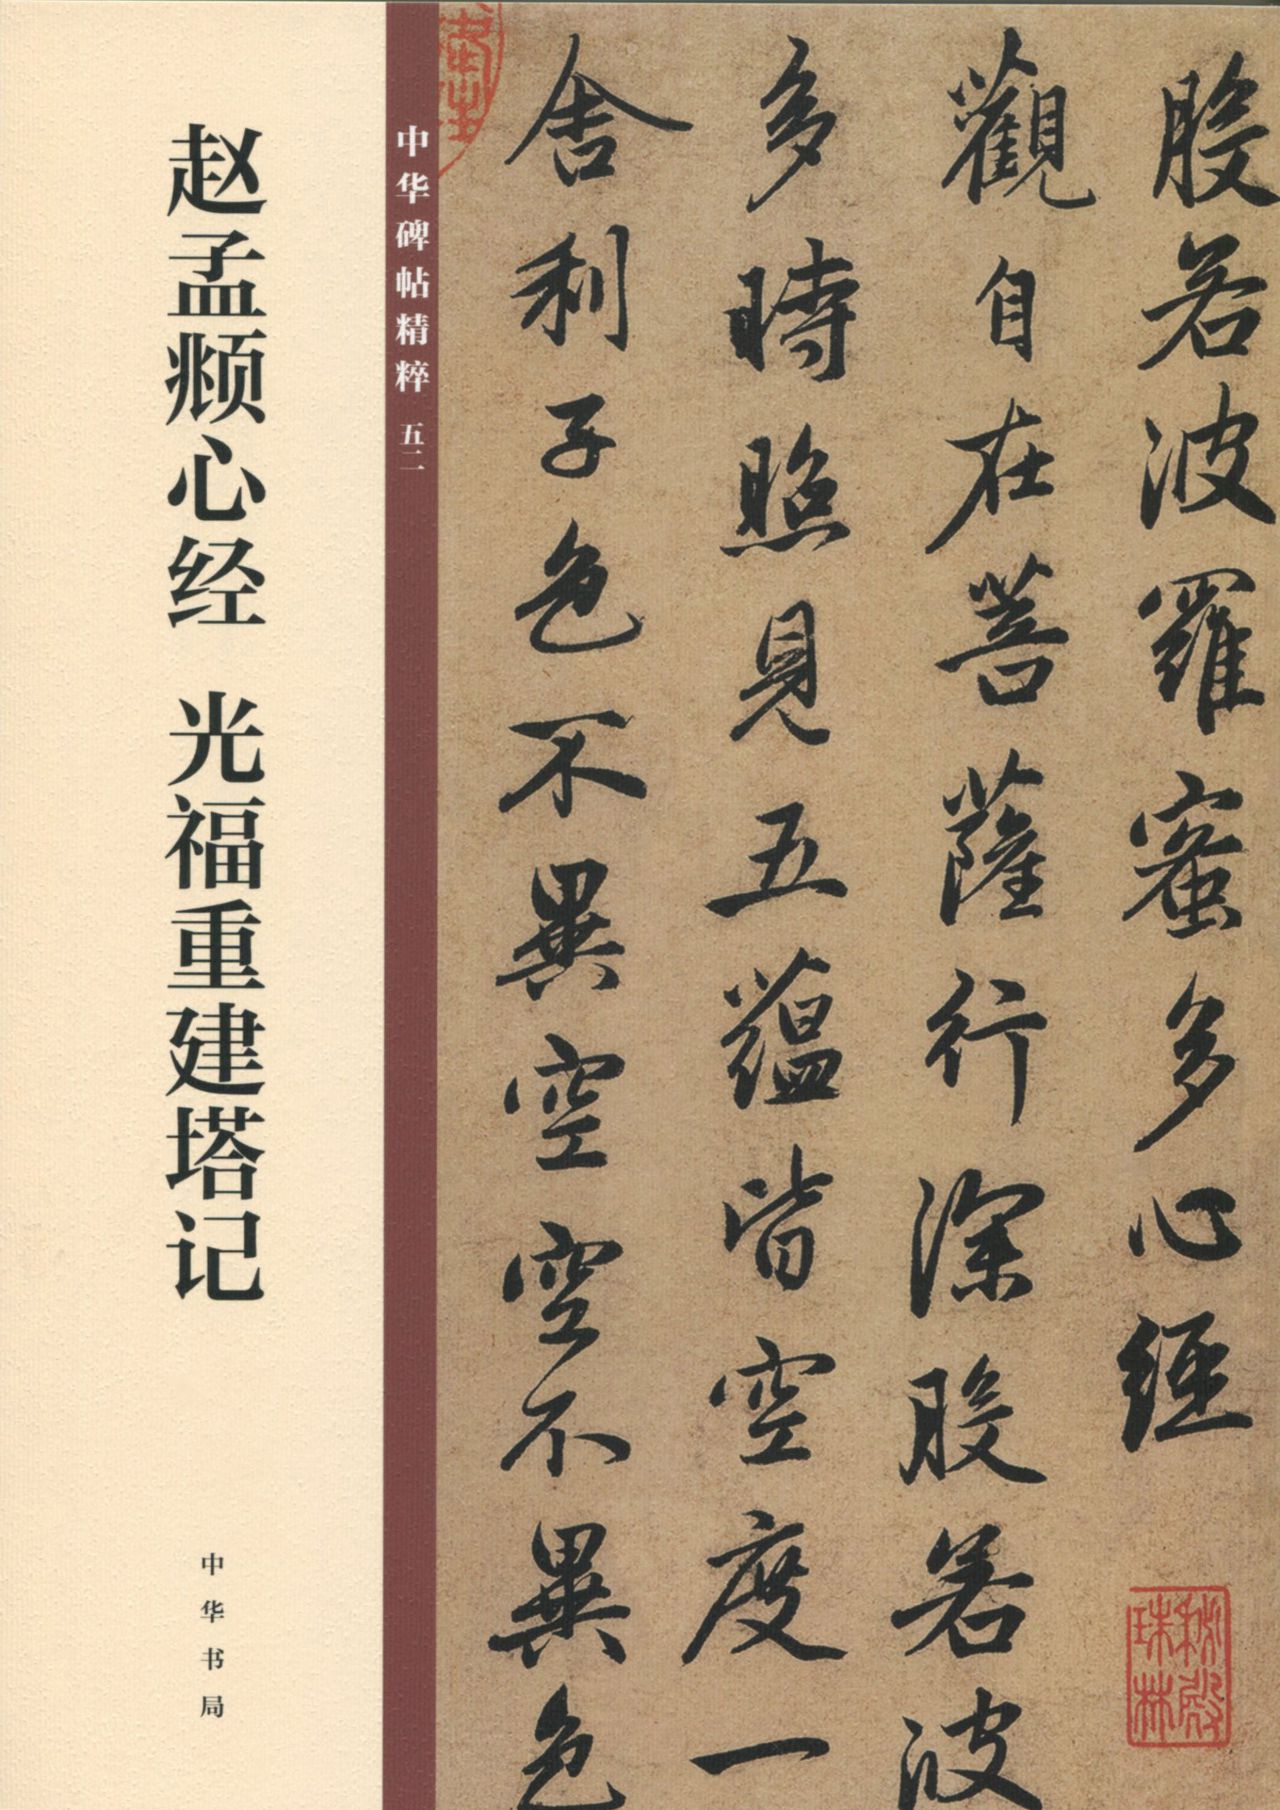 般若波羅蜜多心經
觀自在菩薩行深般若波
多時照見五蘊皆空度一
舍利子色不異空空不異色
中华碑帖精粹 五二
赵孟頫心经 光福重建塔记
中华书局
秘殿
珠林